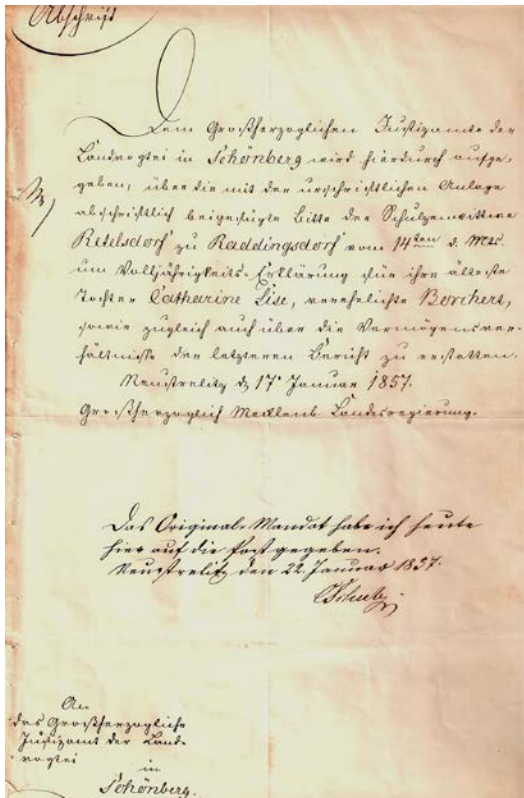 Abschrift
Dem Großherzoglichen Justizamte der
Landvogtei in Schönberg wird hierdurch aufge-
geben, über die mit der urschriftlichen Anlage
abschriftlich beigefügte Bitte der Schulzenwittwe
Retelsdorf zu Raddingsdorf vom 14ten d. Mts.
um Volljährigkeits-Erklärung für ihre älteste
Tochter Catharine Lise, verehelichte Borchert,
sowie zugleich auch über die Vermögensver-
hältnisse der letzteren Bericht zu erstatten.
Neustrelitz d. 17. Januar 1857.
Großherzoglich Mecklenb. Landesregierung.
Das Original-Mandat habe ich heute
hier auf die Post gegeben.
Neustrelitz den 22. Januar 1857.
CSchulz
An
das Großherzogliche
Justizamt der Land-
vogtei
in
Schönberg.